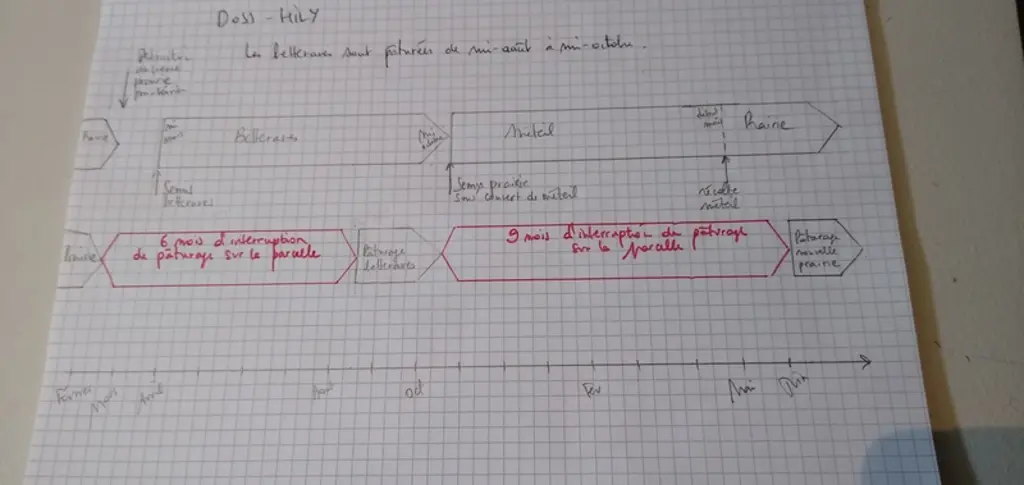 DOSS - HILY
Les betteraves sont pâturées de mi-août à mi-octobre.
Destruction
prairie
Prairie
mi
mars
Betteraves
mi
Méteil
début
Prairie
Semis
betteraves
Semis prairie
sous couvert de méteil
récolte
méteil
Prairie
6 mois d'interruption
de pâturage sur la parcelle
Pâturage
betteraves
9 mois d'interruption du pâturage
sur la parcelle
Pâturage
nouvelle
prairie
Février
Mars
Avril
Août
Oct
Fev
Mai
Juin